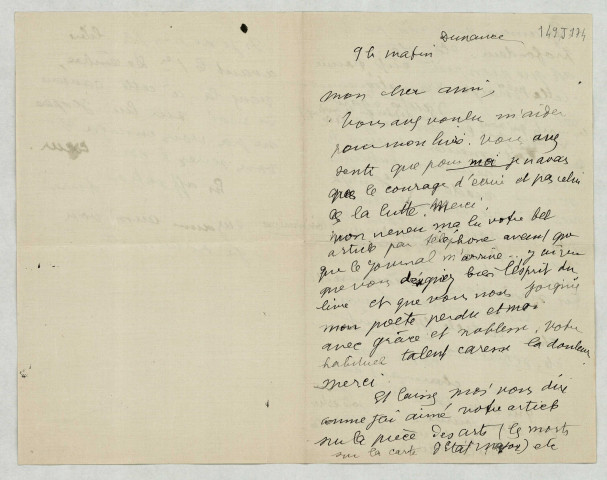 149 J 174
Dimanche
9 h matin
mon cher ami,
Vous avez voulu m'aider
pour mon livre. Vous avez
senti que pour moi je n'avais
pas le courage d'écrire et pas celui
de la lutte. Merci.
mon neveu m'a lu votre bel
article par téléphone avant que
que le journal m'arrive.. j'ai vu
que vous bien l'esprit du
livre et que vous nous
mon poète perdu et moi
avec grâce et noblesse. Votre
habituel talent caresse la douleur
merci
Et laissez moi vous dire
comme j'ai aimé votre article
sur la pièce des arts (les morts
sur la carte d'Etat major) etc